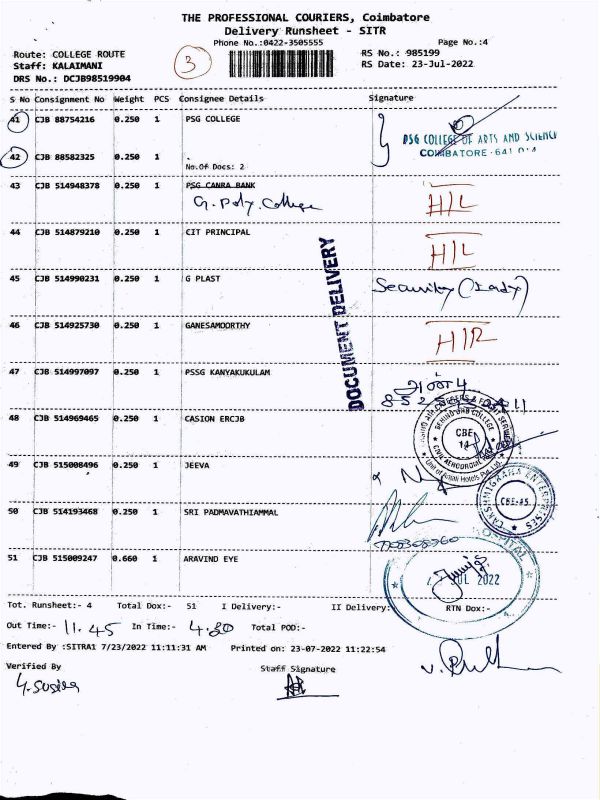 THE PROFESSIONAL COURIERS, Coimbatore
Delivery Runsheet - SITR
Phone No.:0422-3505555 Page No.:4
Route: COLLEGE ROUTE RS No.: 985199
Staff: KALAIMANI 3 RS Date: 23-Jul-2022
DRS No.: DCJB98519904
S No Consignment No Weight PCS Consignee Details Signature
41 CJB 88754216 0.250 1 PSG COLLEGE
PSG COLLEGE OF ARTS AND SCIENCE
COIMBATORE - 641 014
42 CJB 88582325 0.250 1 .
No.Of Docs: 2
43 CJB 514948378 0.250 1 PSG CANRA BANK
G. Poly. College H/L
44 CJB 514879210 0.250 1 CIT PRINCIPAL H/L
45 CJB 514990231 0.250 1 G PLAST Security (Lady)
DOCUMENT DELIVERY
46 CJB 514925730 0.250 1 GANESAMOORTHY H/R
47 CJB 514997097 0.250 1 PSSG KANYAKUKULAM
48 CJB 514969465 0.250 1 CASION ERCJB
BEHIND GRD COLLEGE
CBE
14
Unit of Annai Hotels Pvt. Ltd.
49 CJB 515008496 0.250 1 JEEVA
LAKSHMIGRAHA ENTERPRISES
CBE-35
50 CJB 514193468 0.250 1 SRI PADMAVATHIAMMAL
HOSPITAL
51 CJB 515009247 0.660 1 ARAVIND EYE
JUL 2022
Tot. Runsheet:- 4 Total Dox:- 51 I Delivery:- II Delivery: RTN Dox:-
Out Time:- 11.45 In Time:- 4.20 Total POD:-
Entered By :SITRA1 7/23/2022 11:11:31 AM Printed on: 23-07-2022 11:22:54
Verified By Staff Signature